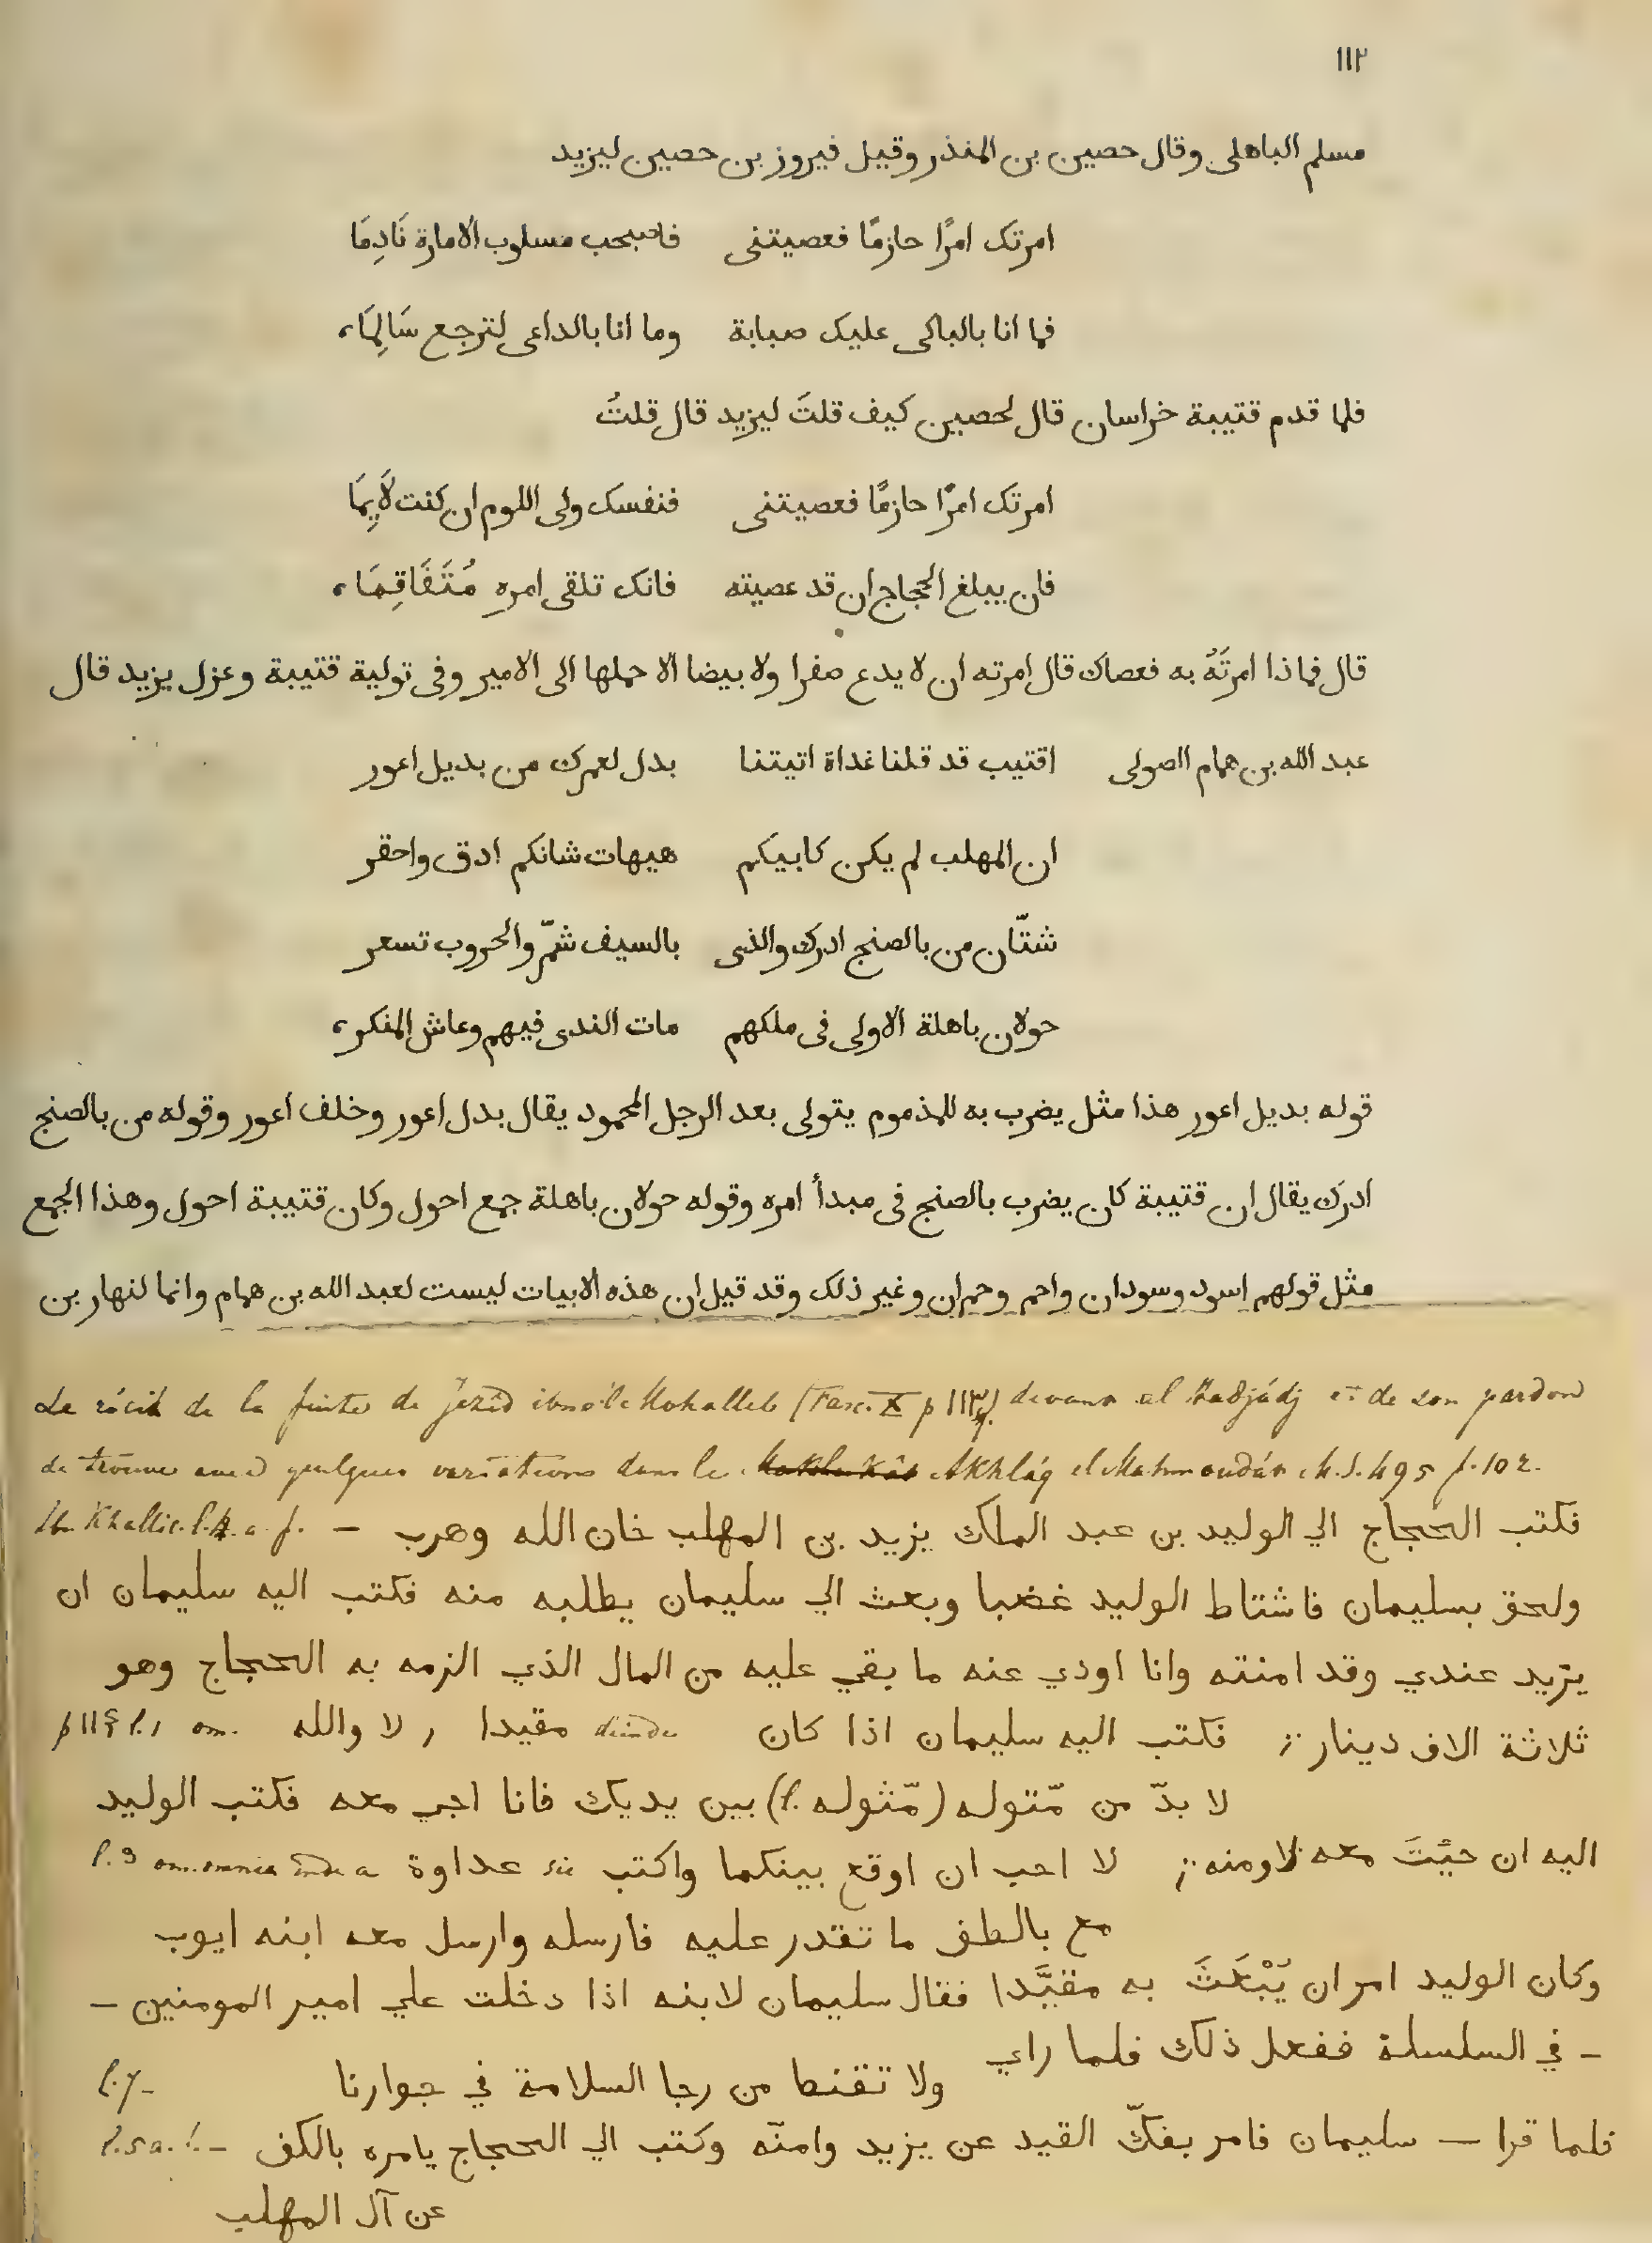 ١١٢
مسلم الباهلى وقال حصين بن المنذر وقيل فيروز بن حصين ليزيد
امرتك امرًا حازمًا فعصيتنى فاصبحت مسلوب الامارة نَادِمَا
فما انا بالباكى عليك صبابة وما انا بالداعى لترجع سَالِمَا،
فلما قدم قتيبة خراسان قال لحصين كيف قلتَ ليزيد قال قلتُ
امرتك امرًا حازمًا فعصيتنى فنفسك ولى اللوم ان كنت لَايِمَا
فان يبلغ الحجاج ان قد عصيته فانك تلقى امره مُتَفَاقِمَا،
قال فماذا امرتَهُ به فعصاك قال امرته ان لا يدع صفرا ولا بيضا الا حملها الى الامير وفى تولية قتيبة وعزل يزيد قال
عبد الله بن همام الصولى اقتيب قد قلنا غداة اتيتنا بدل لعمرك من بديل اعور
ان المهلب لم يكن كابيكم هيهات شانكم ادق واحقر
شتّان من بالصنج ادرك والذى بالسيف شمّر والحروب تسعر
حولان باهلة الاولى فى ملكهم مات الندى فيهم وعاش المنكر،
قوله بديل اعور هذا مثل يضرب به للمذموم يتولى بعد الرجل المحمود يقال بدل اعور وخلف اعور وقوله من بالصنج
ادرك يقال ان قتيبة كان يضرب بالصنج فى مبدأ امره وقوله حولان باهلة جمع احول وكان قتيبة احول وهذا الجمع
مثل قولهم اسود وسودان واحمر وحمران وغير ذلك وقد قيل ان هذه الابيات ليست لعبد الله بن همام وانما لنهار بن
Le récit de la fuite de Jezîd ibno'l-Mohalleb (Fasc. X p ١١٣) devant el Hadjádj et de son pardon
se trouve avec quelques variations dans le Akhlág el Mahmoudán M.S. 495 p. 102.
Ibn Khallic. فكتب الحجاج الي الوليد بن عبد الملك يزيد بن المهلب خان الله وهرب –
ولحق بسليمان فاشتاط الوليد غضبا وبعث الي سليمان يطلبه منه فكتب اليه سليمان ان
يزيد عندي وقد امنته وانا اودي عنه ما بقي عليه من المال الذي الزمه به الحجاج وهو
ثلاثة الاف دينار فكتب اليه سليمان اذا كان deinde مقيدا , لا والله om. p ١١٤ l. ١
لا بدّ من مّتوله (l. مّثوله) بين يديك فانا اجي معه فكتب الوليد
اليه ان جيّتَ معه لاومنه لا احب ان اوقع بينكما واكتب sic عداوة l. 9 om. omnia inde a
مع بالطف ما تقدر عليه فارسله وارسل معه ابنه ايوب
وكان الوليد امر ان يَبْعَثَ به مقيَّدا فقال سليمان لابنه اذا دخلت علي امير المومنين –
– في السلسلة ففعل ذلك فلما راي
ولا تقنط من رجا السلامة في جوارنا l. 7–
فلما قرا – سليمان فامر بفكّ القيد عن يزيد وامنّه وكتب الي الحجاج يامره بالكف – l. 5 a. f.
عن آل المهلب